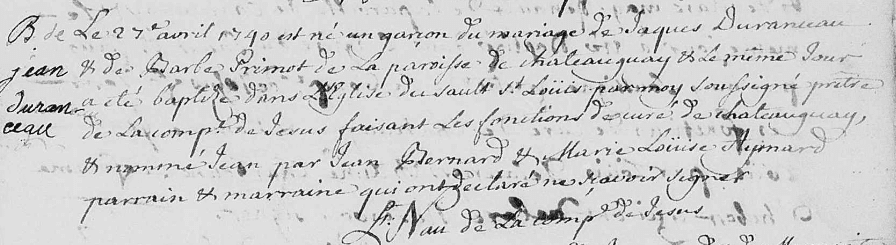 B de
jean
duran
ceau
Le 27e avril 1740 est né un garçon du mariage de Jaques Duranceau
& de Barbe Primot de La paroisse de chateauguay & Le même Jour
a eté baptizé dans L'Eglise du sault St Loüis par moy soussigné prêtre
de La comp.e de Jesus faisant Les fonctions de curé de chateauguay,
& nommé Jean par Jean Bernard & Marie Loüise
parrain & marraine qui ont declaré ne scavoir signer
Nau de La comp.e de Jesus